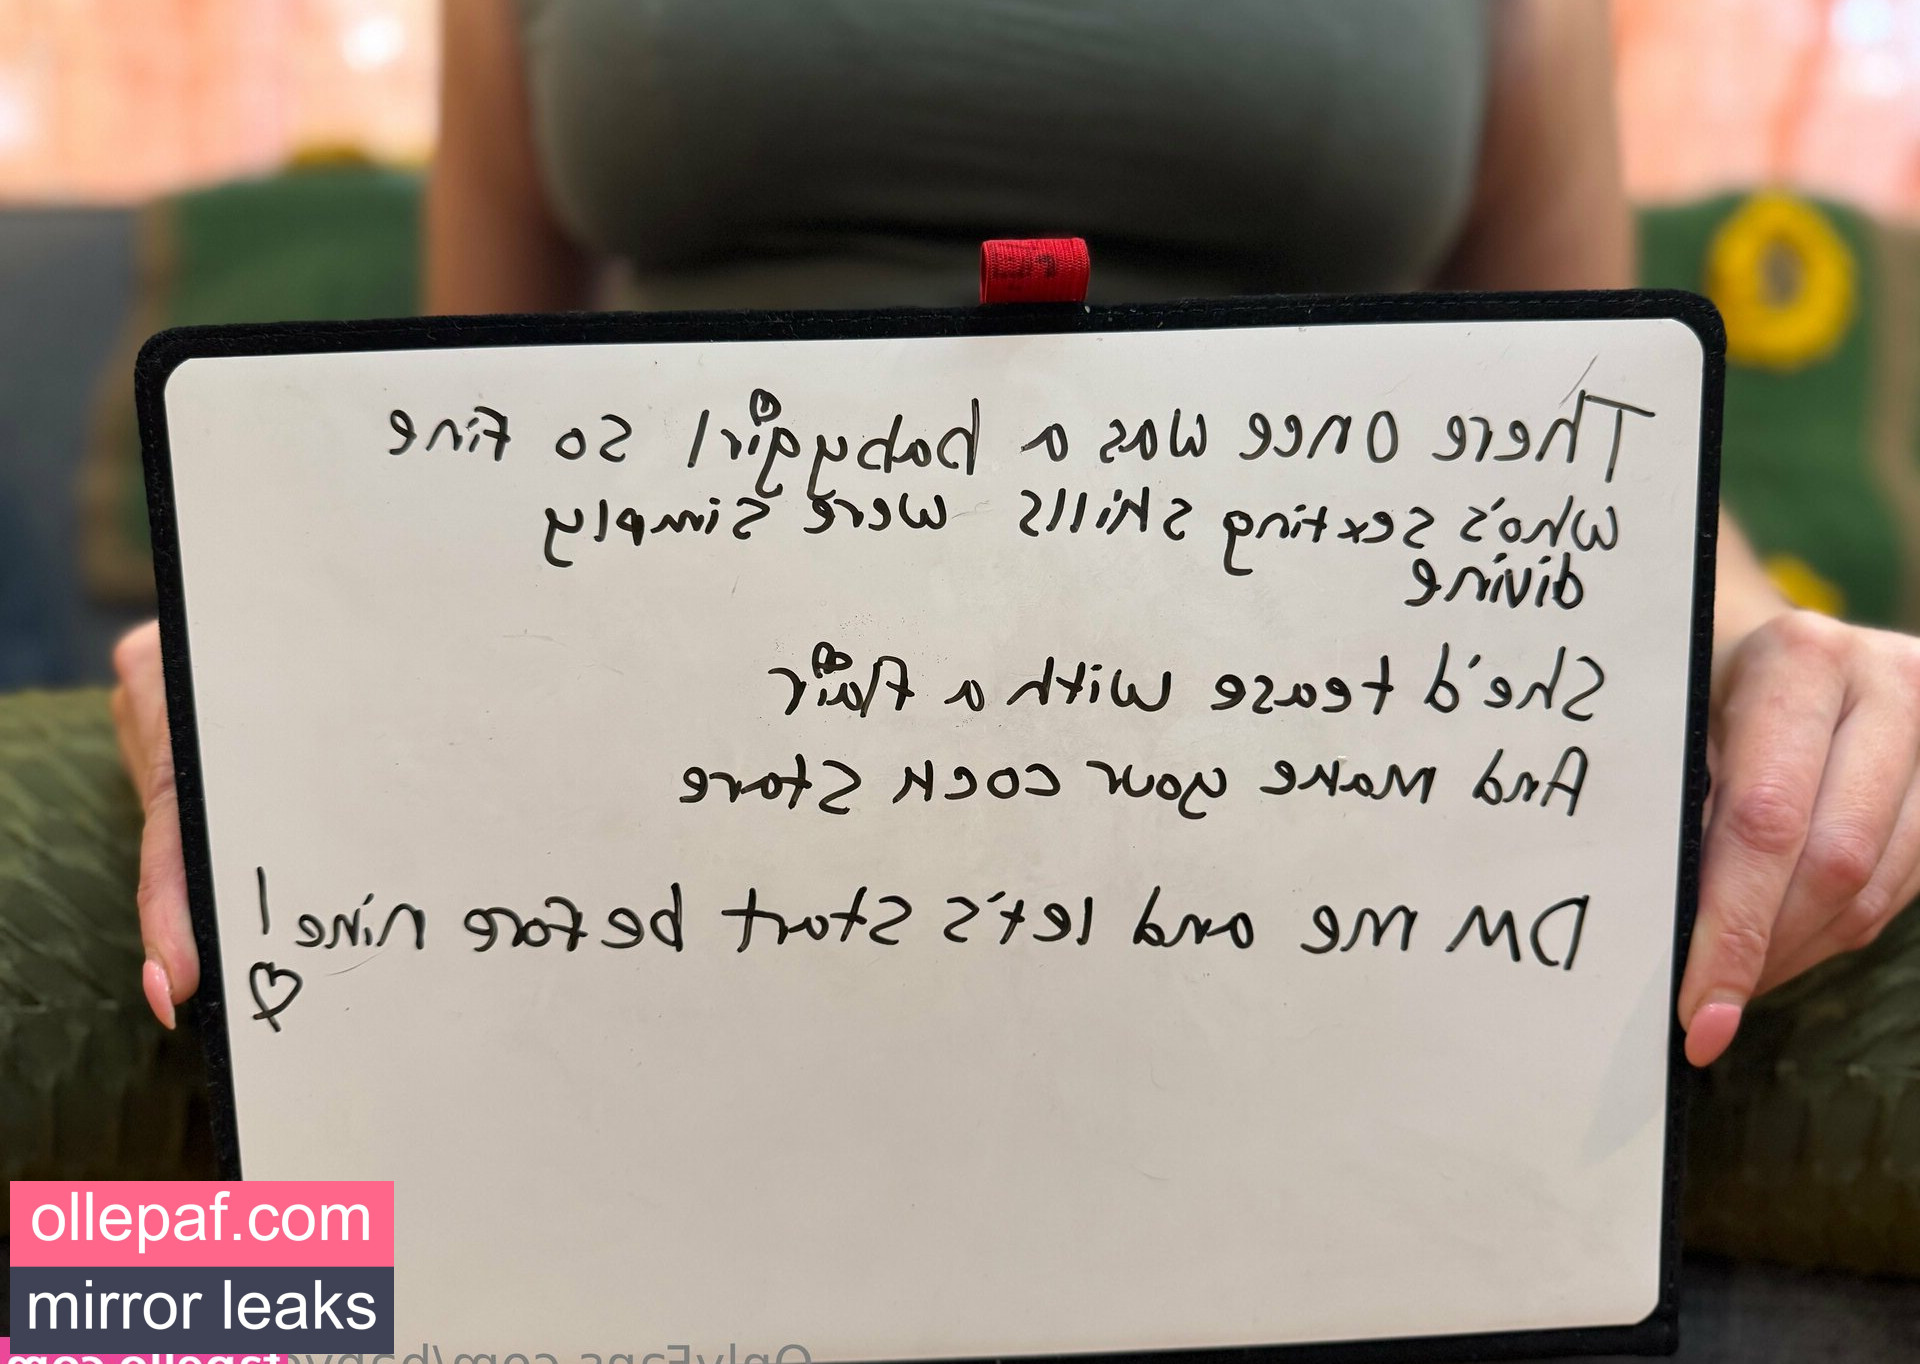 There once was a babygirl so fine
Who's sexting skills were simply
divine
She'd tease with a flair
And make your cock stare
DM me and let's start before nine!
ollepaf.com
mirror leaks